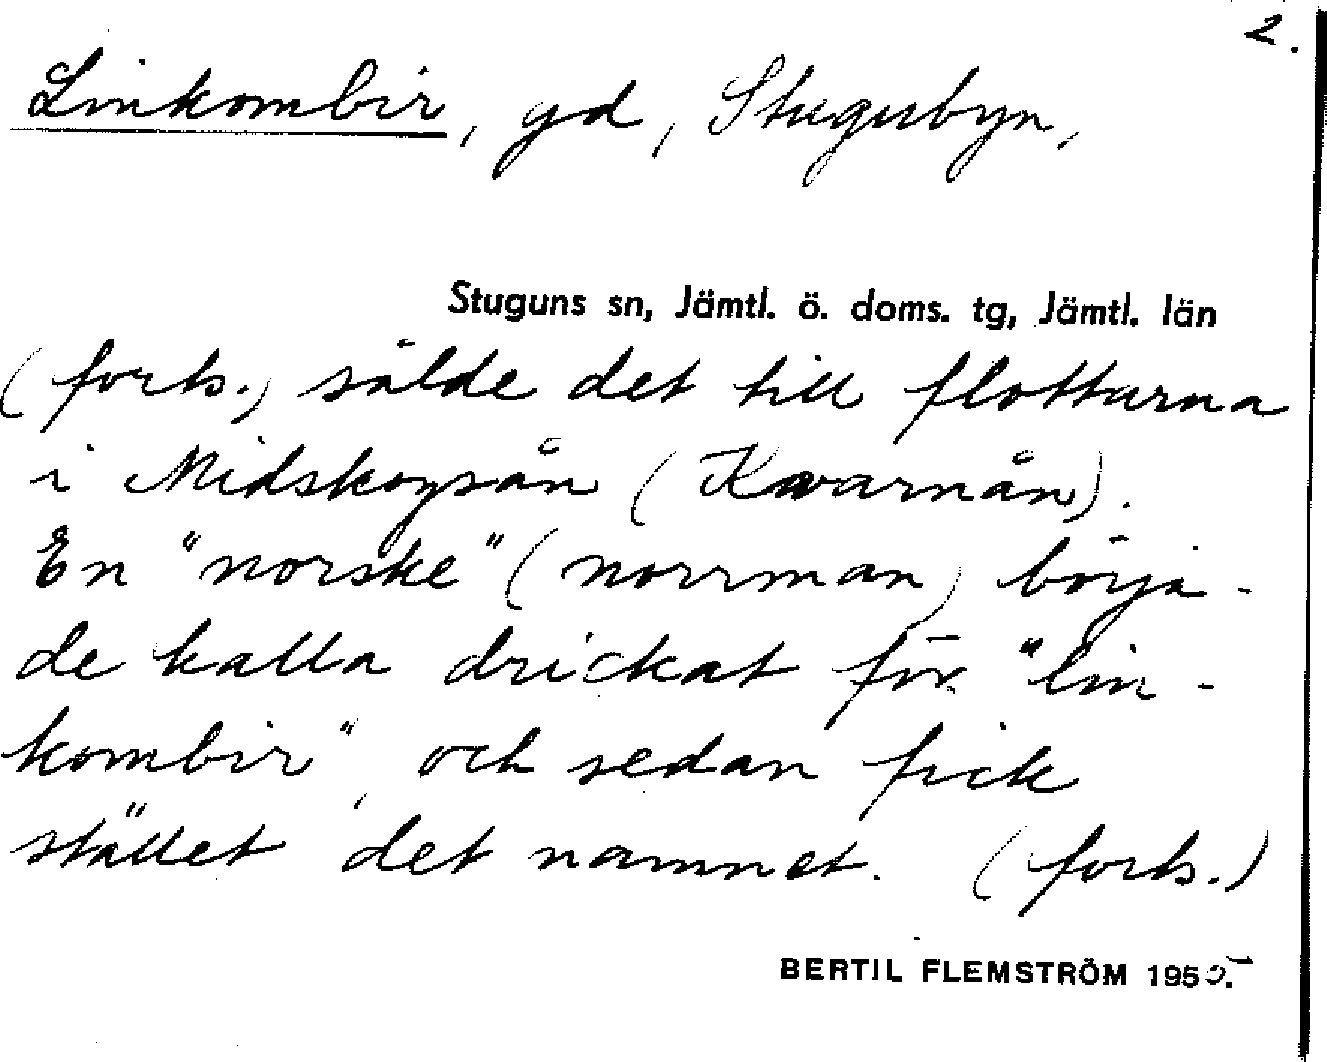 2.
Linkombir, gd, Stugubyn,
Stuguns sn, Jämtl. ö. doms. tg, Jämtl. län
(forts.) sålde det till flottarna
i Midskogsån (Kvarnån).
En "norske" (norrman) börja-
de kalla drickat för "lin-
kombir", och sedan fick
stället det namnet. (forts.)
BERTIL FLEMSTRÖM 195